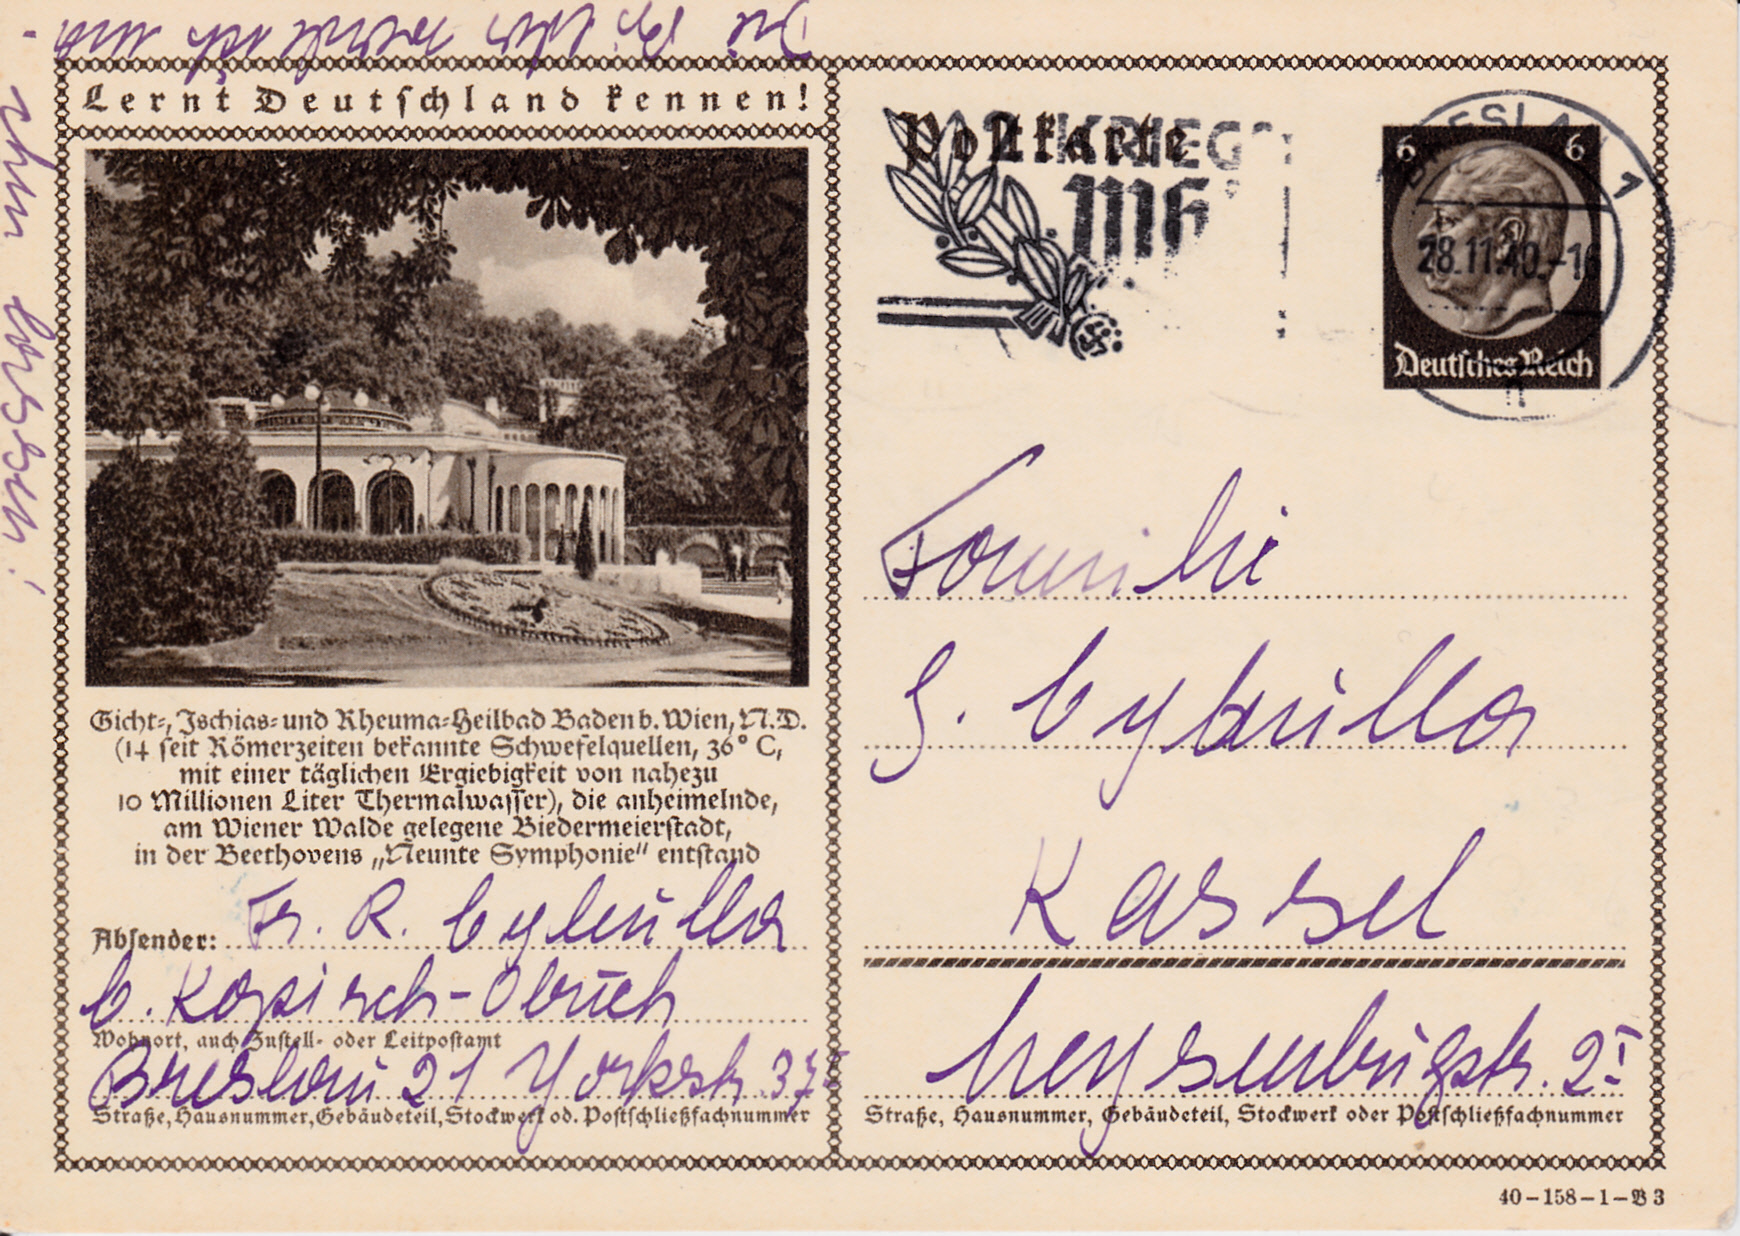 Die
Lernt Deutschland kennen!
Postkarte
2. KRIEGS
WH
BRESLAU 1
28.11.40.-16
n
6 6
Deutsches Reich
Gicht-, Ischias- und Rheuma-Heilbad Baden b. Wien, N. D.
(14 seit Römerzeiten bekannte Schwefelquellen, 36° C,
mit einer täglichen Ergiebigkeit von nahezu
10 Millionen Liter Thermalwasser), die anheimelnde,
am Wiener Walde gelegene Biedermeierstadt,
in der Beethovens „Neunte Symphonie“ entstand
Absender: Fr. R. Cybulla
b. Kopisch-Obuch
Wohnort, auch Zustell- oder Leitpostamt
Breslau 21 Yorkstr. 37
Straße, Hausnummer, Gebäudeteil, Stockwerk od. Postschließfachnummer
Familie
G. Cybulla
Kassel
Heysenbugstr. 2 I
Straße, Hausnummer, Gebäudeteil, Stockwerk oder Postschließfachnummer
40-158-1-B 3